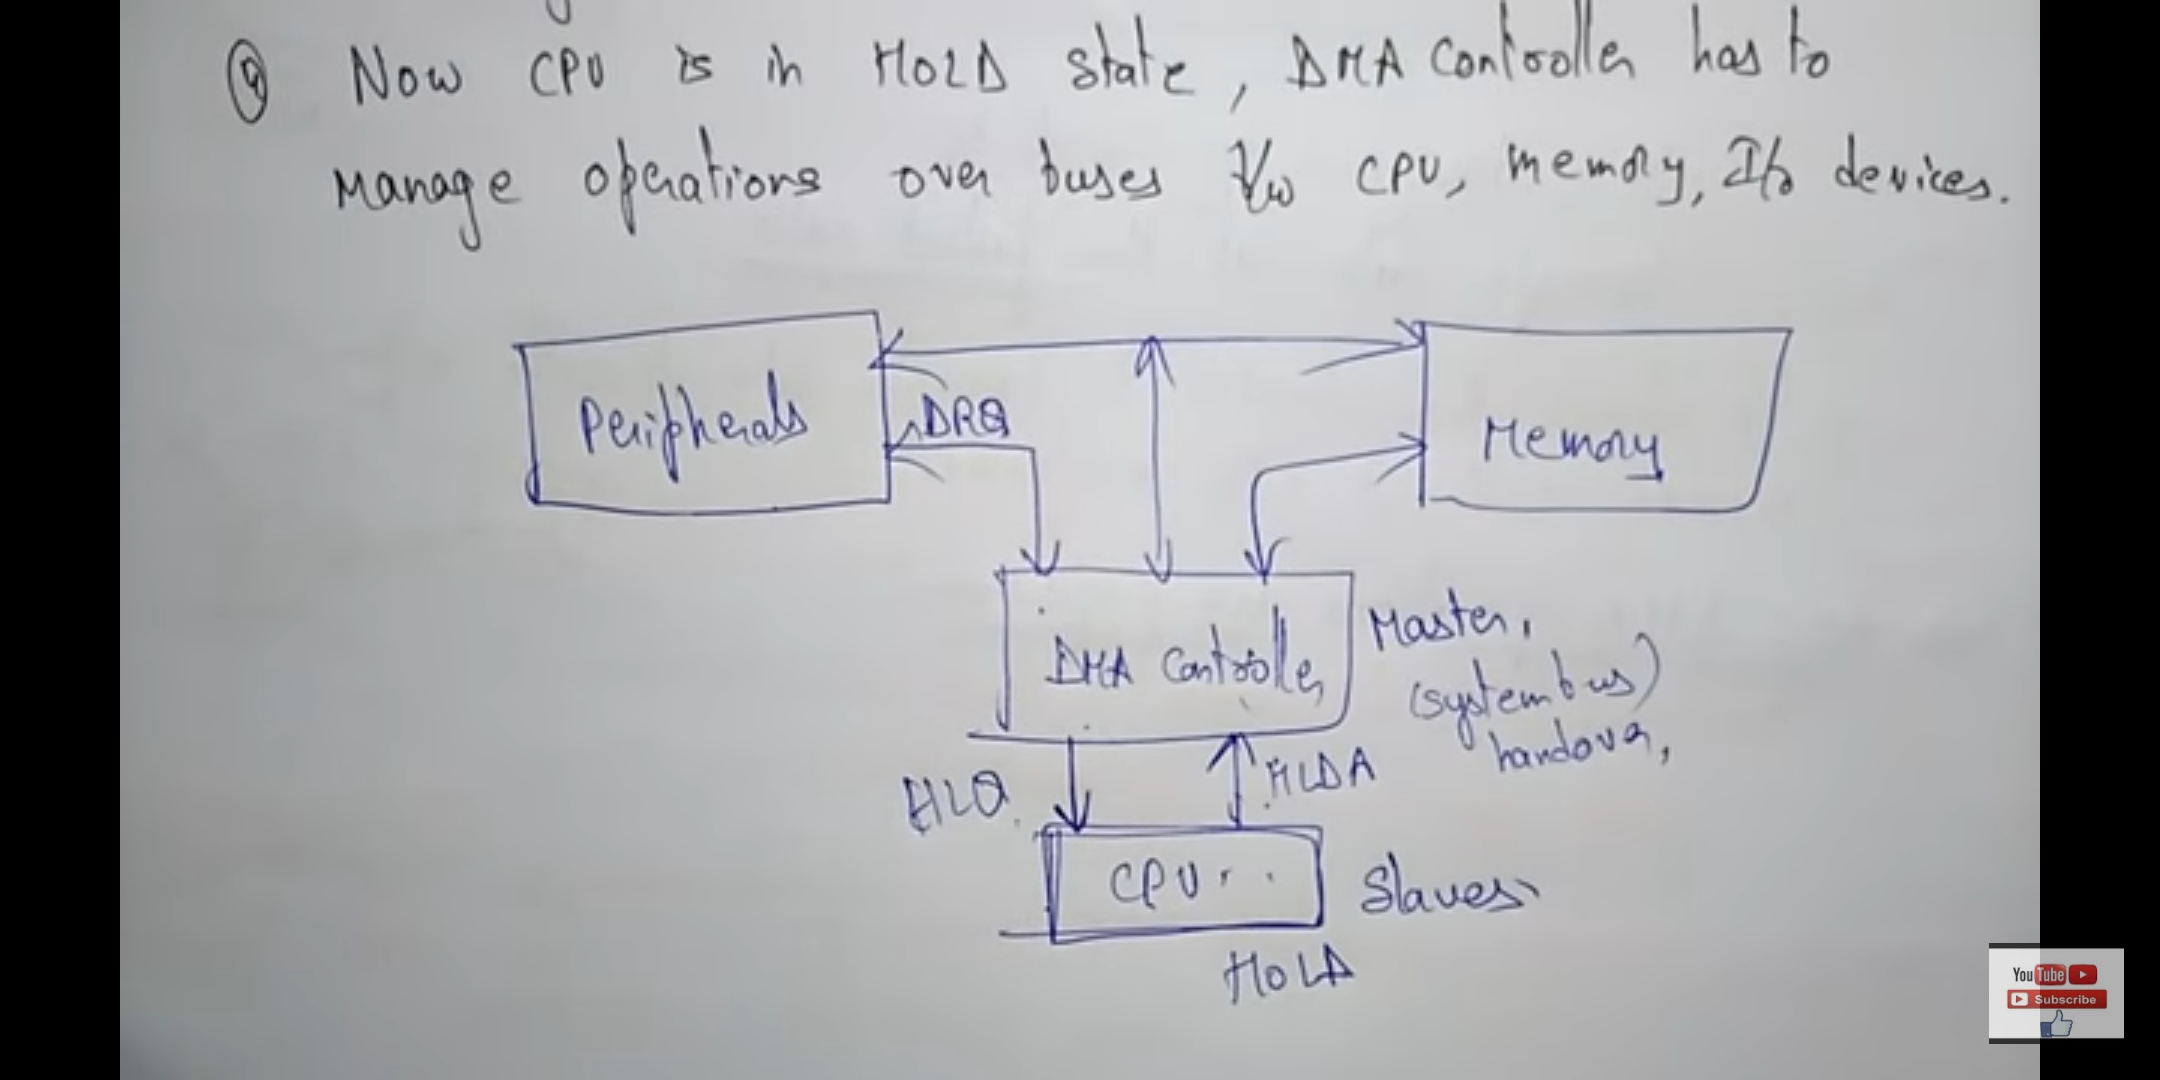 ④ Now CPU is in HOLD state, DMA Controller has to
manage operations over buses b/w CPU, memory, I/o devices.
Peripherals
DRQ
Memory
DMA Controller
Master,
(system bus)
handover,
HLQ
HLDA
CPU
Slaves
HOLD
YouTube
Subscribe